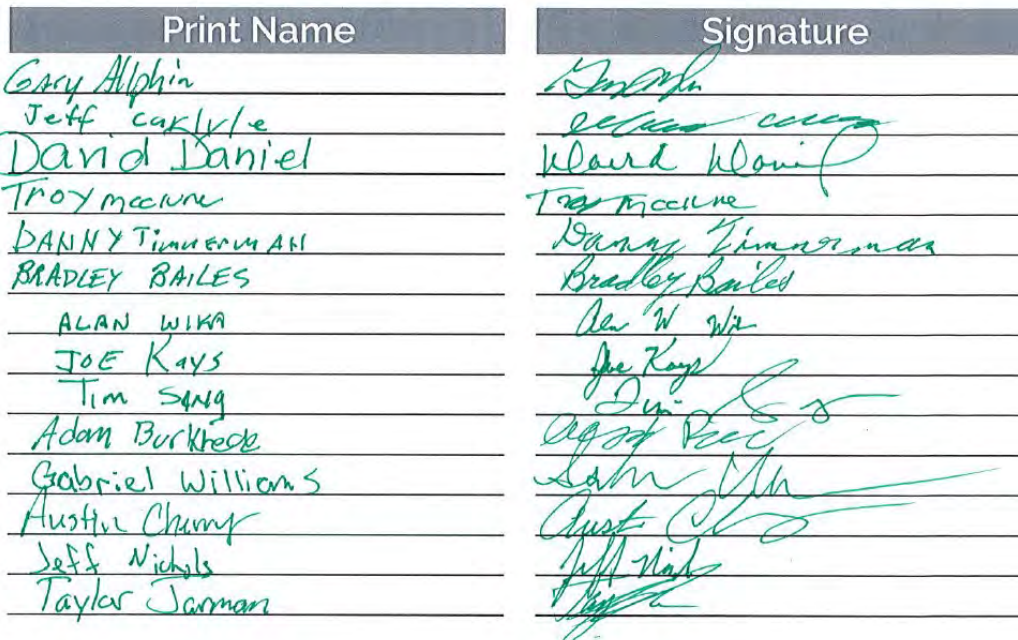 Print Name Signature
Gary Allphin
Jeff Carlyle
David Daniel David Daniel
Troy McClune Troy McClune
DANNY Timmerman Danny Timmerman
BRADLEY BAILES Bradley Bailes
ALAN WIKA
JOE Kays Joe Kays
Tim SANG Tim
Adam
Gabriel Williams
Austin
Jeff Nichols Jeff
Taylor Jarman